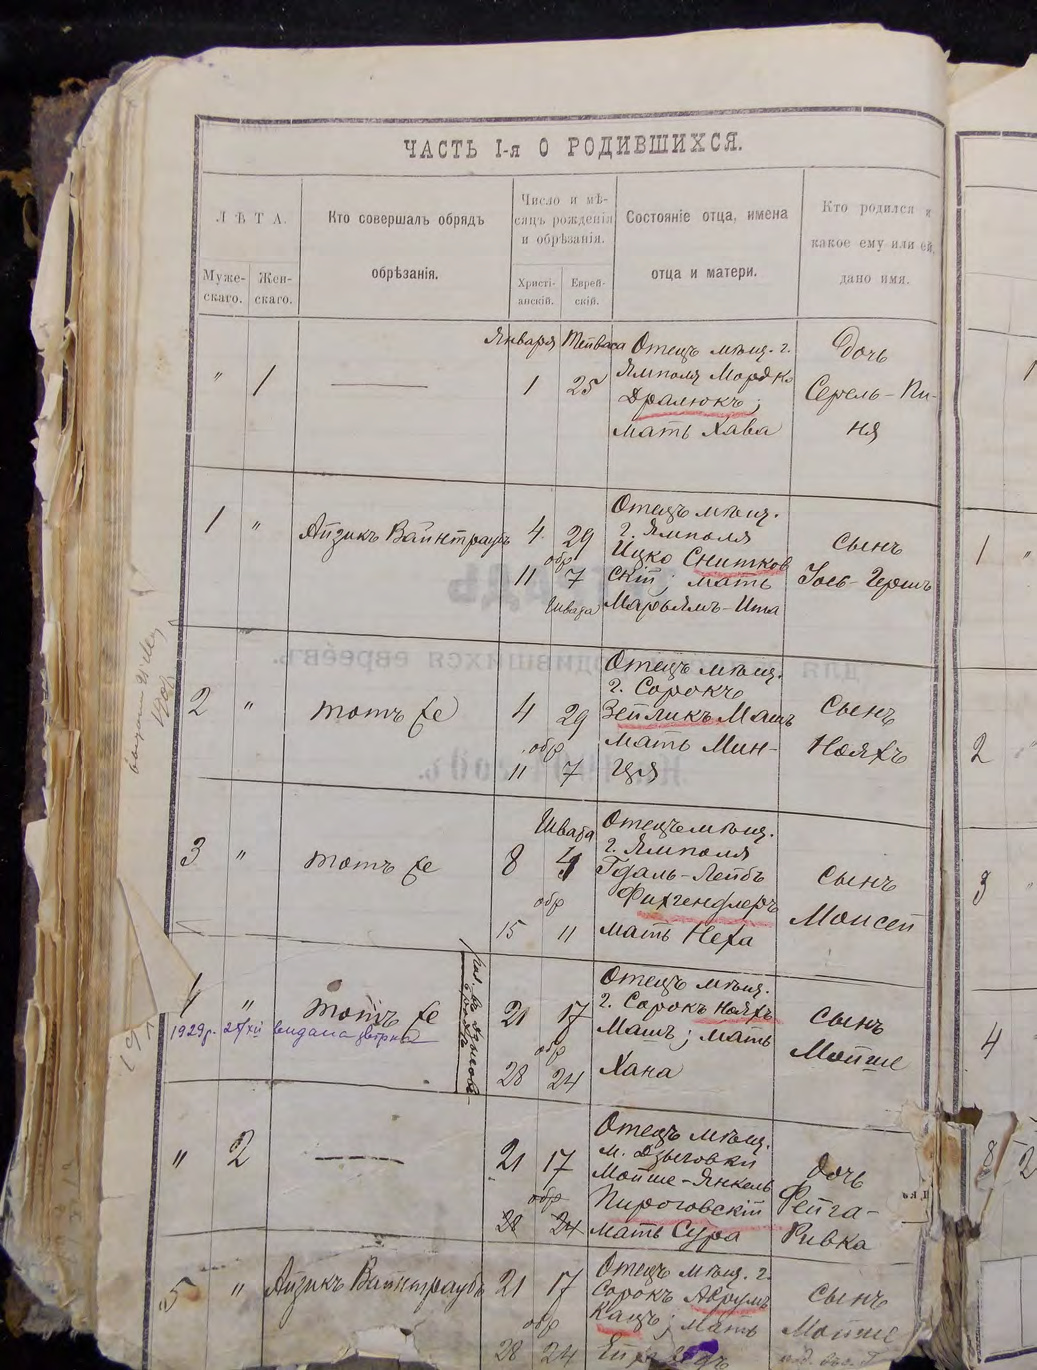 ЧАСТЬ I-я О РОДИВШИХСЯ.
ЛѢТА.
Муже-
скаго.
Жен-
скаго.
Кто совершалъ обрядъ
обрѣзанія.
Число и мѣ-
сяцъ рожденія
и обрѣзанія.
Христі-
анскій.
Еврей-
скій.
Состояніе отца, имена
отца и матери.
Кто родился и
какое ему или ей
дано имя.
Января Тейваса
" 1
1 25
Отецъ мѣщ. г.
Ямполя Мордко
Дралюкъ;
мать Хава
дочь
Серель-Пи-
ня
1 "
Айзикъ Вайнтраубъ
4 29
обр
11 7
Швата
Отецъ мѣщ.
г. Ямполя
Ицко Снитков
скій; мать
Марьямъ-Ита
сынъ
Іось-Гершъ
2 "
тотъ же
4 29
обр
11 7
Отецъ мѣщ.
г. Сорокъ
Зейликъ Машъ
мать Мин-
ця
сынъ
Нояхъ
3 "
тотъ же
Швата
8 4
обр
15 11
Отецъ мѣщ.
г. Ямполя
Гдаль-Лейбъ
Фихгендлеръ
мать Неха
сынъ
Моисей
4 "
тотъ же
1929р. 27/XII видана
21 17
обр
28 24
Отецъ мѣщ.
г. Сорокъ Нояхъ
Машъ; мать
Хана
сынъ
Мойше
" 2
21 17
обр
28 24
Отецъ мѣщ.
м. Дзыговки
Мойше-Янкель
Пироговскій
мать Сура
дочь
Фейга-
Ривка
5 "
Айзикъ Вайнтраубъ
21 17
обр
28 24
Отецъ мѣщ. г.
Сорокъ
Кацъ; мать
сынъ
Мойше
1
1 "
2
3
4
8 2